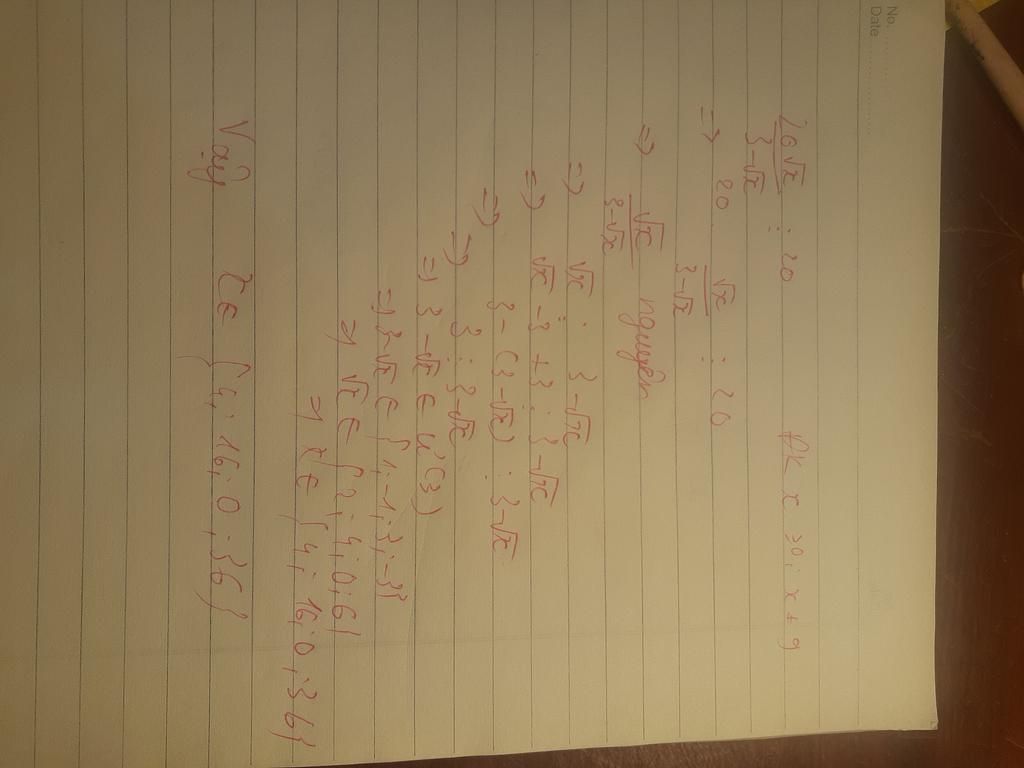 No.
Date
20√x/(3-√x) ⋮ 20 ĐK x ≥ 0; x ≠ 9
=> 20. √x/(3-√x) ⋮ 20
=> √x/(3-√x) nguyên
=> √x ⋮ 3-√x
=> √x -3 +3 ⋮ 3-√x
=> 3 - (3-√x) ⋮ 3-√x
=> 3 ⋮ 3-√x
=> 3-√x ∈ Ư(3)
=> 3-√x ∈ {1; -1; 3; -3}
=> √x ∈ {2; 4; 0; 6}
=> x ∈ {4; 16; 0; 36}
Vậy x ∈ {4; 16; 0; 36}